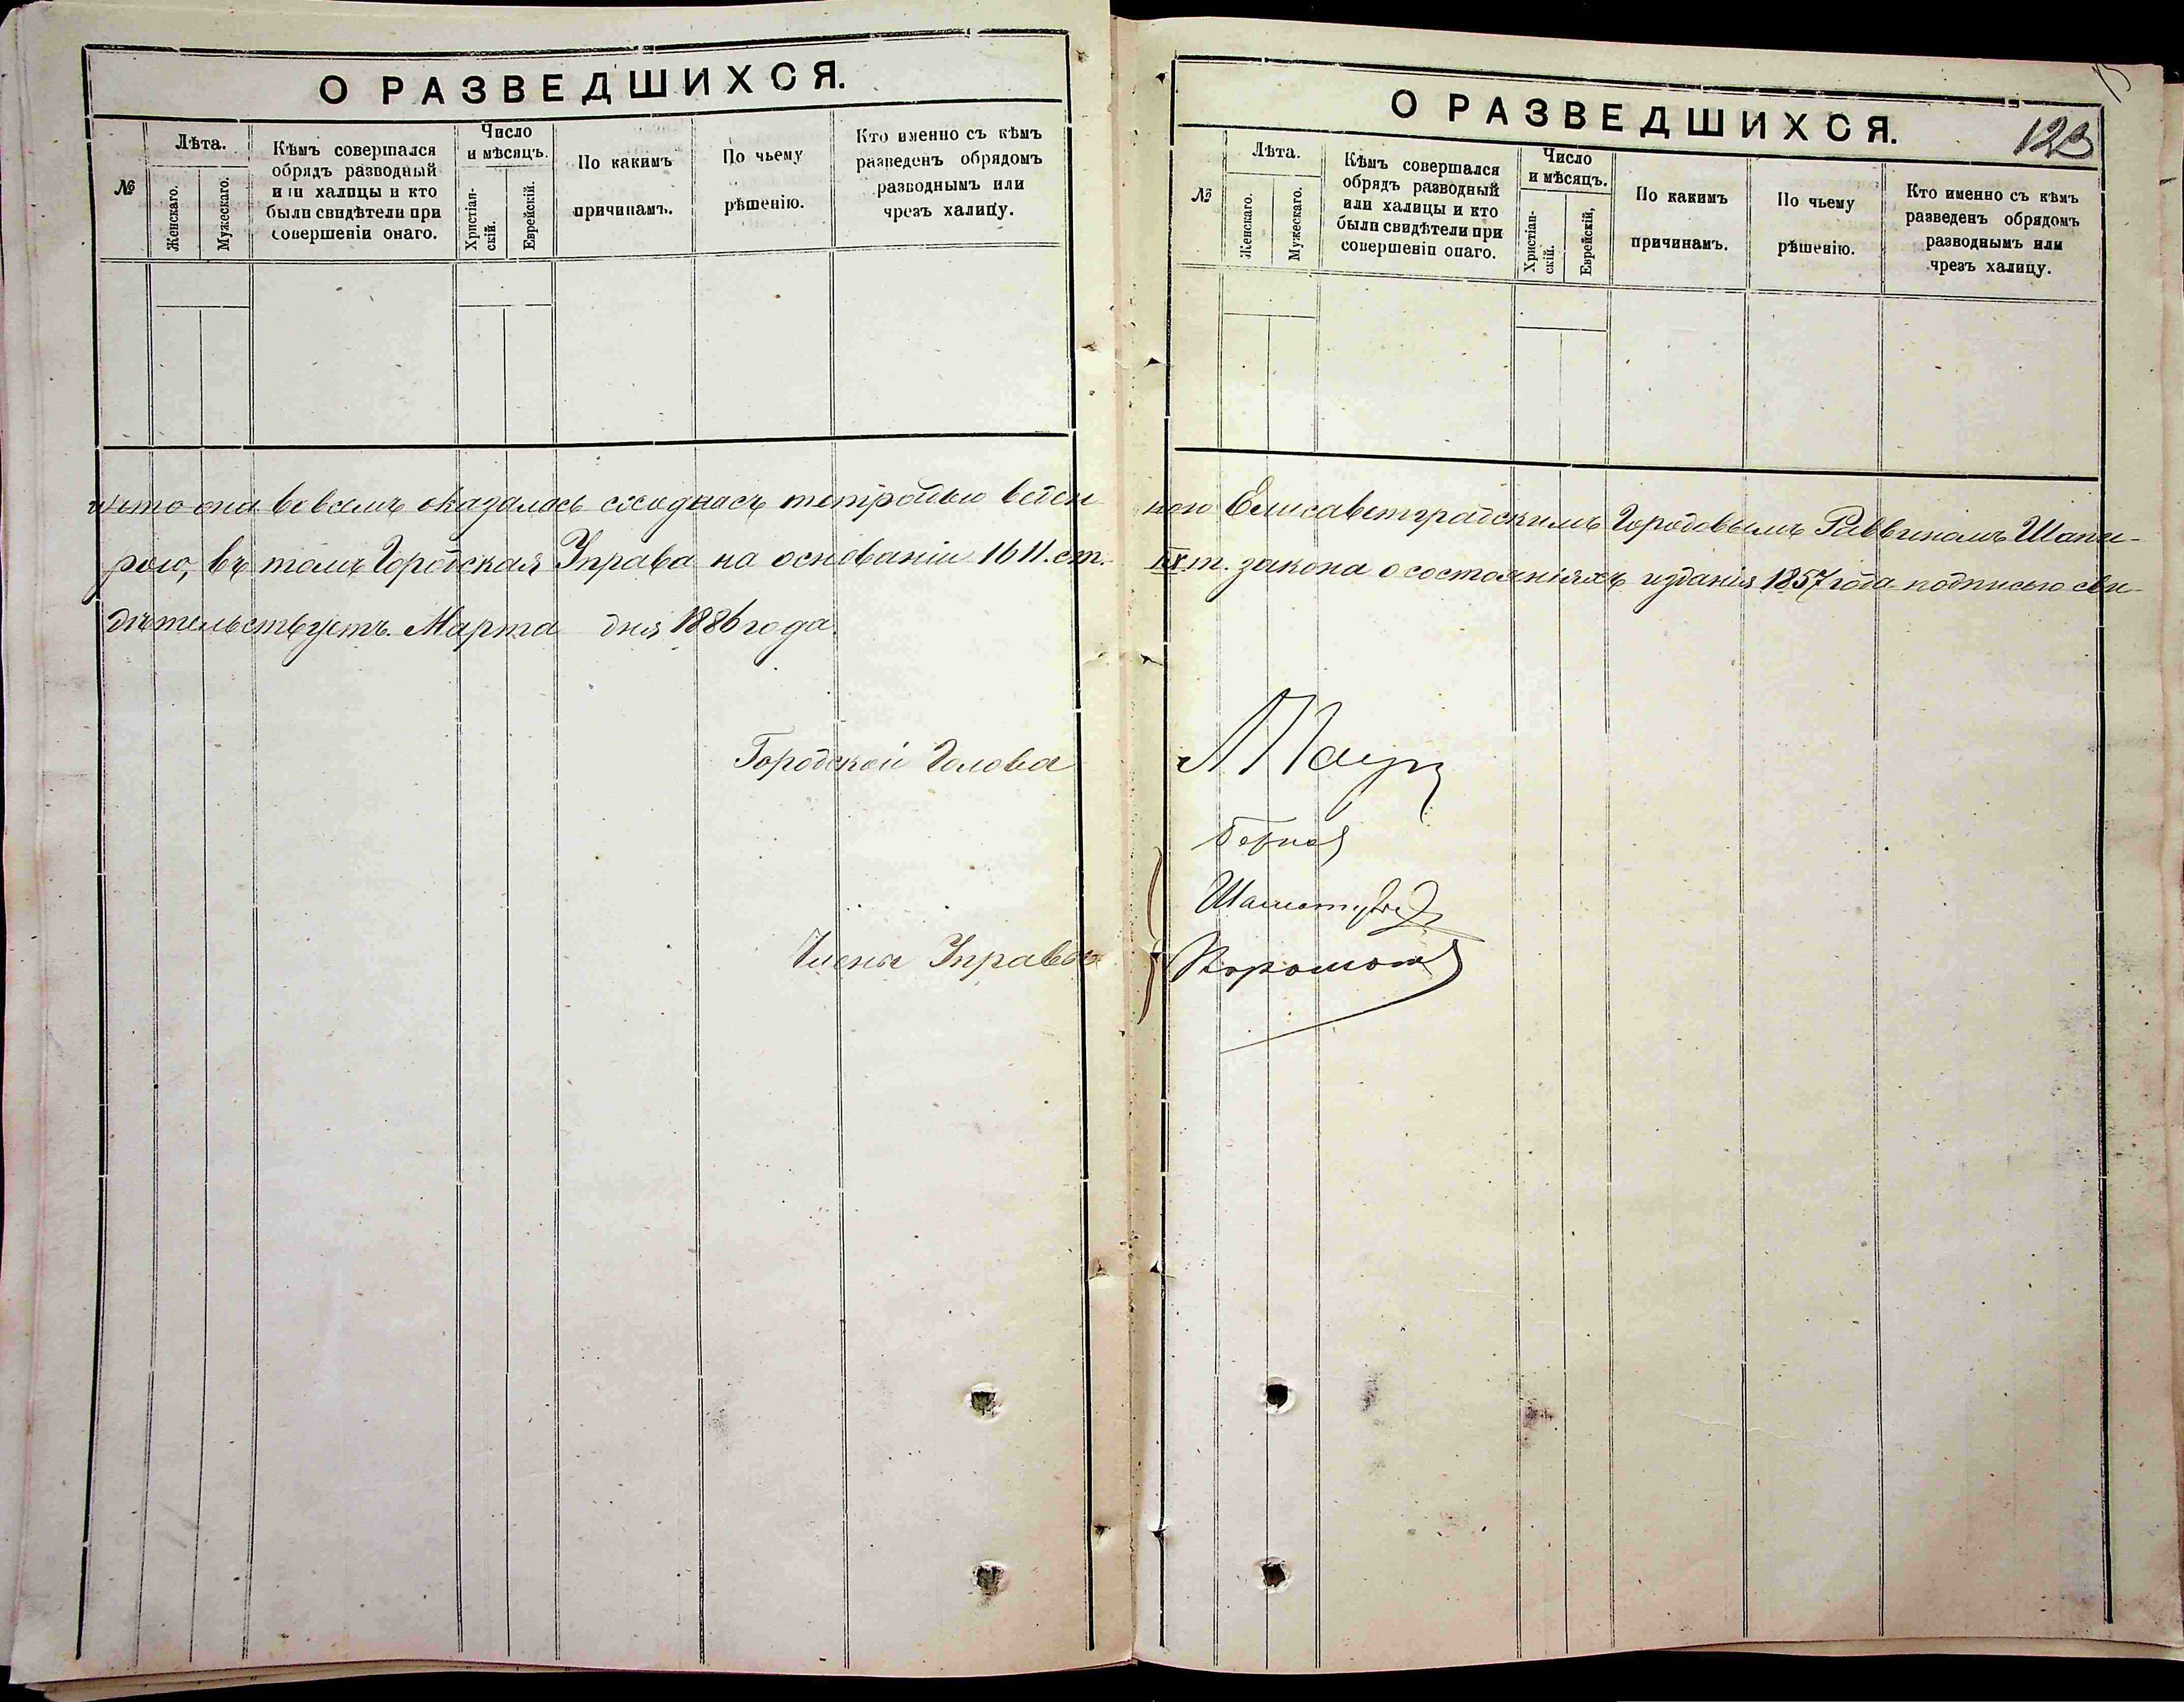 О РАЗВЕДШИХСЯ.
№
Лѣта.
Женскаго.
Мужескаго.
Кѣмъ совершался
обрядъ разводный
или халицы и кто
были свидѣтели при
совершеніи онаго.
Число
и мѣсяцъ.
Христіан-
скій.
Еврейскій.
По какимъ
причинамъ.
По чьему
рѣшенію.
Кто именно съ кѣмъ
разведенъ обрядомъ
разводнымъ или
чрезъ халицу.
О РАЗВЕДШИХСЯ.
123
№
Лѣта.
Женскаго.
Мужескаго.
Кѣмъ совершался
обрядъ разводный
или халицы и кто
были свидѣтели при
совершеніи онаго.
Число
и мѣсяцъ.
Христіан-
скій.
Еврейскій,
По какимъ
причинамъ.
По чьему
рѣшенію.
Кто именно съ кѣмъ
разведенъ обрядомъ
разводнымъ или
чрезъ халицу.
что она во всемъ оказалась сходнасъ тетрадью веден ною Елисаветградскимъ Городовымъ Раввиномъ Шапи-
рою, въ томъ Городская Управа на основаніи 1611. ст. IX т. закона о состояніяхъ изданія 1857 года подписью сви-
дѣтельствуетъ. Марта дня 1886 года.
Городской Голова
Члены Управы